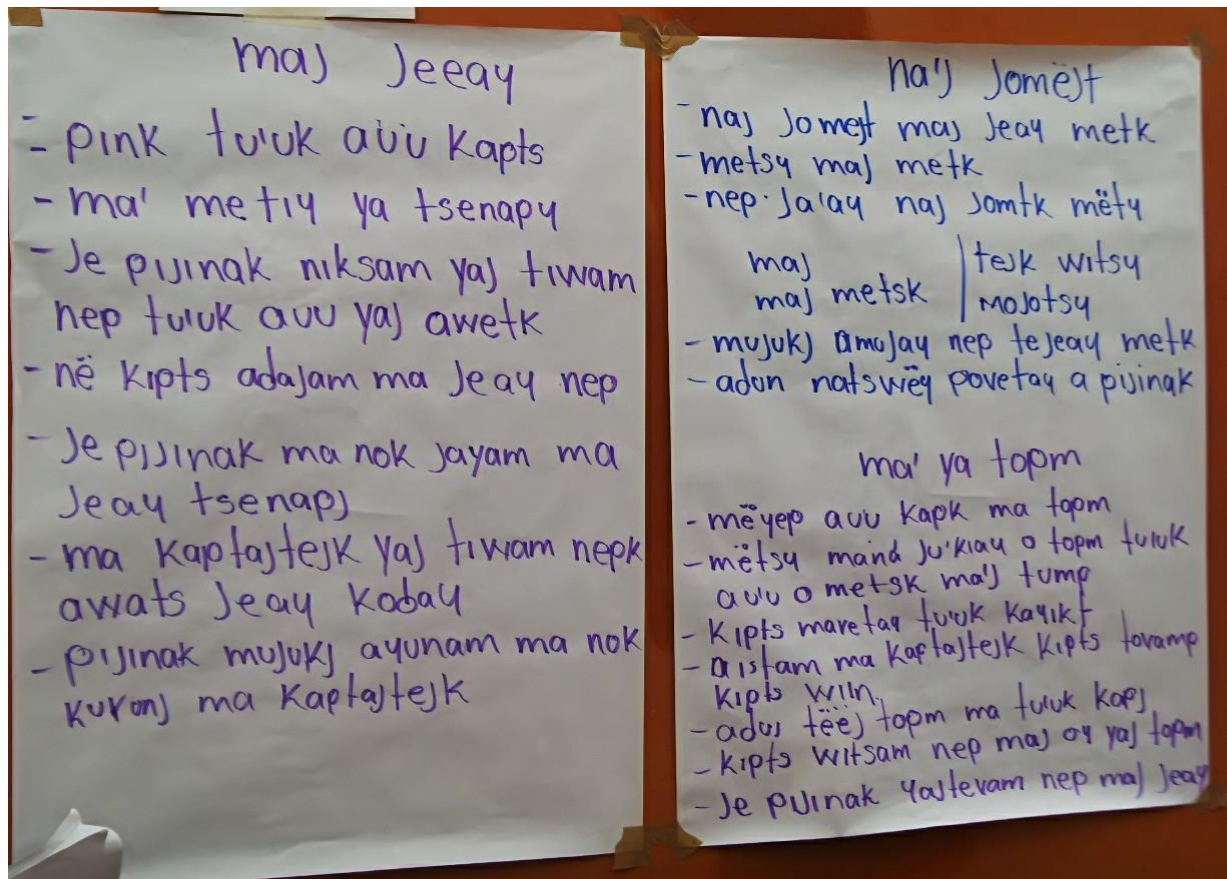 maj Jeeay
- pink tu'uk auu Kapts
- ma' metiy ya tsenapy
- Je pijinak niksam yaj tiwam
nep tu'uk auu yaj awetk
- në kipts adajam ma Jeay nep
- Je pijinak ma nok Jayam ma
Jeay tsenapj
- ma Kaptajtejk yaj tiwam nepk
awats Jeay kobay
- pijinak mujukj ayunam ma nok
kuronj ma Kaptajtejk
na'j Jomëjt
- naj Jomejt maj Jeay metk
- metsy maj metk
- nep Ja'ay naj Jomtk mëty
maj | tejk witsy
maj metsk | mojotsy
- mujukj amujay nep tejeay metk
- adon natswëy povetay a pijinak
ma' ya topm
- mëyep auu Kapk ma topm
- mëtsy mand Ju'kiay o topm tuiuk
au'u o metsk ma'j tump
- Kipts maretay tuuk Kayikt
- aistam ma Kaptajtejk kipts tovamp
kipts wiin.
- aduj tëëj topm ma tuiuk Kapj
- Kipts witsam nep maj oy yaj topm
- Je pijinak yajtevam nep maj Jeay